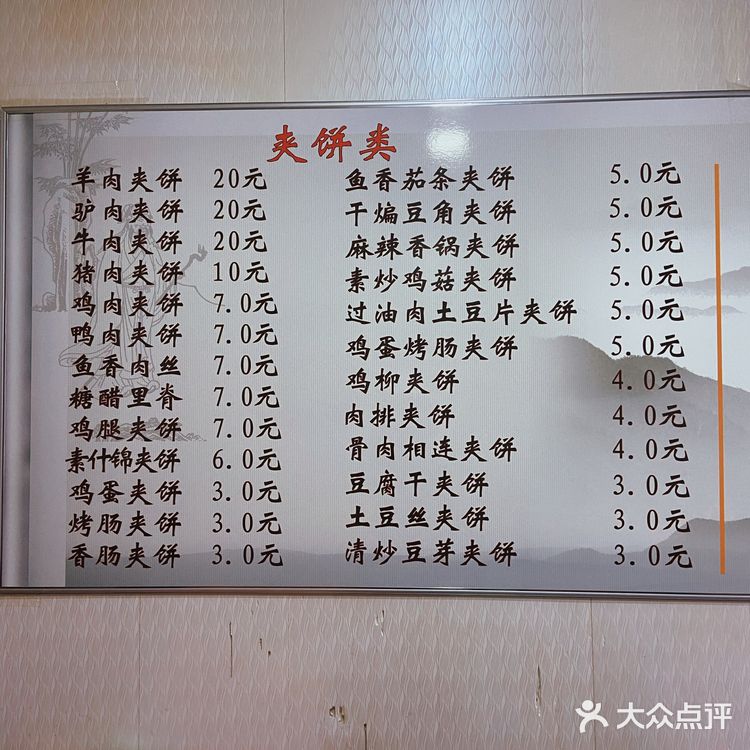 夹饼类
羊肉夹饼 20元
驴肉夹饼 20元
牛肉夹饼 20元
猪肉夹饼 10元
鸡肉夹饼 7.0元
鸭肉夹饼 7.0元
鱼香肉丝 7.0元
糖醋里脊 7.0元
鸡腿夹饼 7.0元
素什锦夹饼 6.0元
鸡蛋夹饼 3.0元
烤肠夹饼 3.0元
香肠夹饼 3.0元
鱼香茄条夹饼 5.0元
干煸豆角夹饼 5.0元
麻辣香锅夹饼 5.0元
素炒鸡菇夹饼 5.0元
过油肉土豆片夹饼 5.0元
鸡蛋烤肠夹饼 5.0元
鸡柳夹饼 4.0元
肉排夹饼 4.0元
骨肉相连夹饼 4.0元
豆腐干夹饼 3.0元
土豆丝夹饼 3.0元
清炒豆芽夹饼 3.0元
大众点评